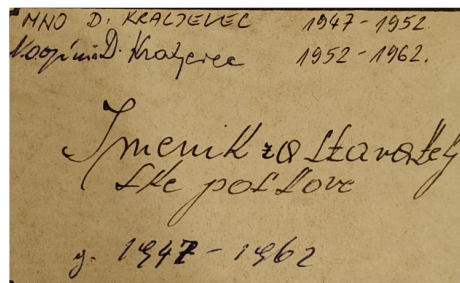 MNO D. KRALJEVEC 1947-1952.
Općina D. Kraljevec 1952-1962.
Imenik za staratelj
ske poslove
g. 1947-1962